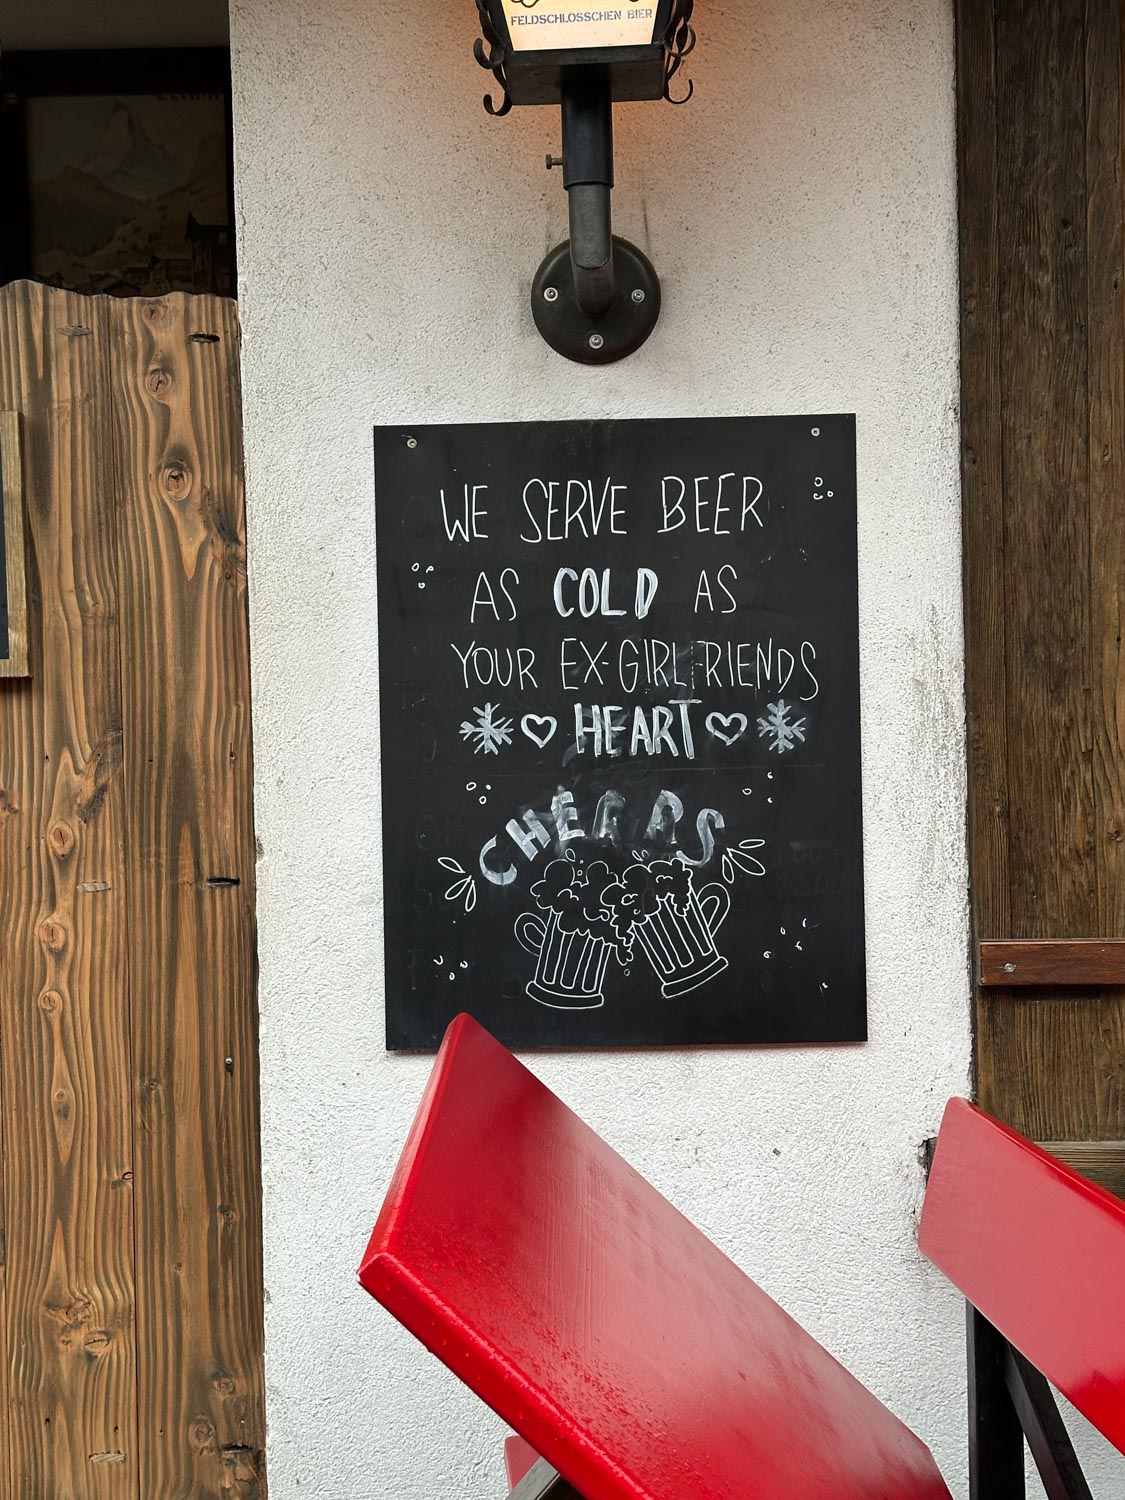 FELDSCHLÖSSCHEN BIER
WE SERVE BEER
AS COLD AS
YOUR EX-GIRLFRIENDS
HEART
CHEERS